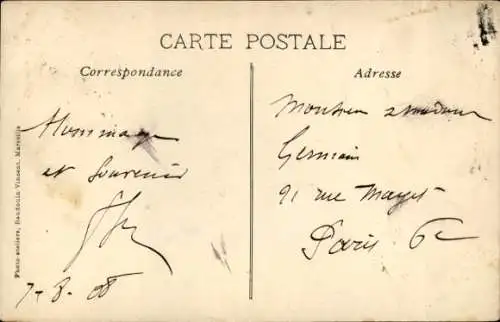 CARTE POSTALE
Correspondance
Adresse
Hommage
et Souvenir
7-8-08
Monsieur
Germain
91 rue
Paris 6e
Photo-ateliers, Baudouin Vincent, Marseille